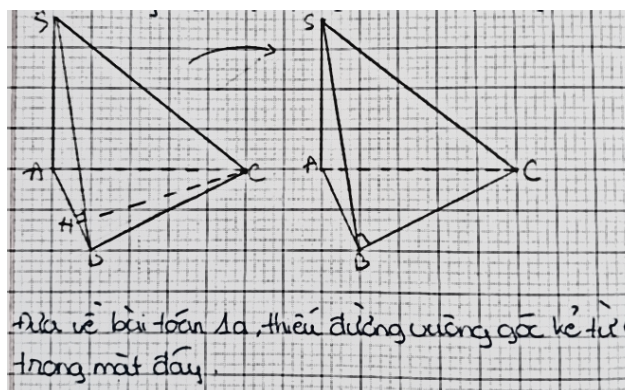 S
S
A
C
A
C
H
B
B
Đưa về bài toán 1a, thiếu đường vuông góc kẻ từ
trong mặt đáy.